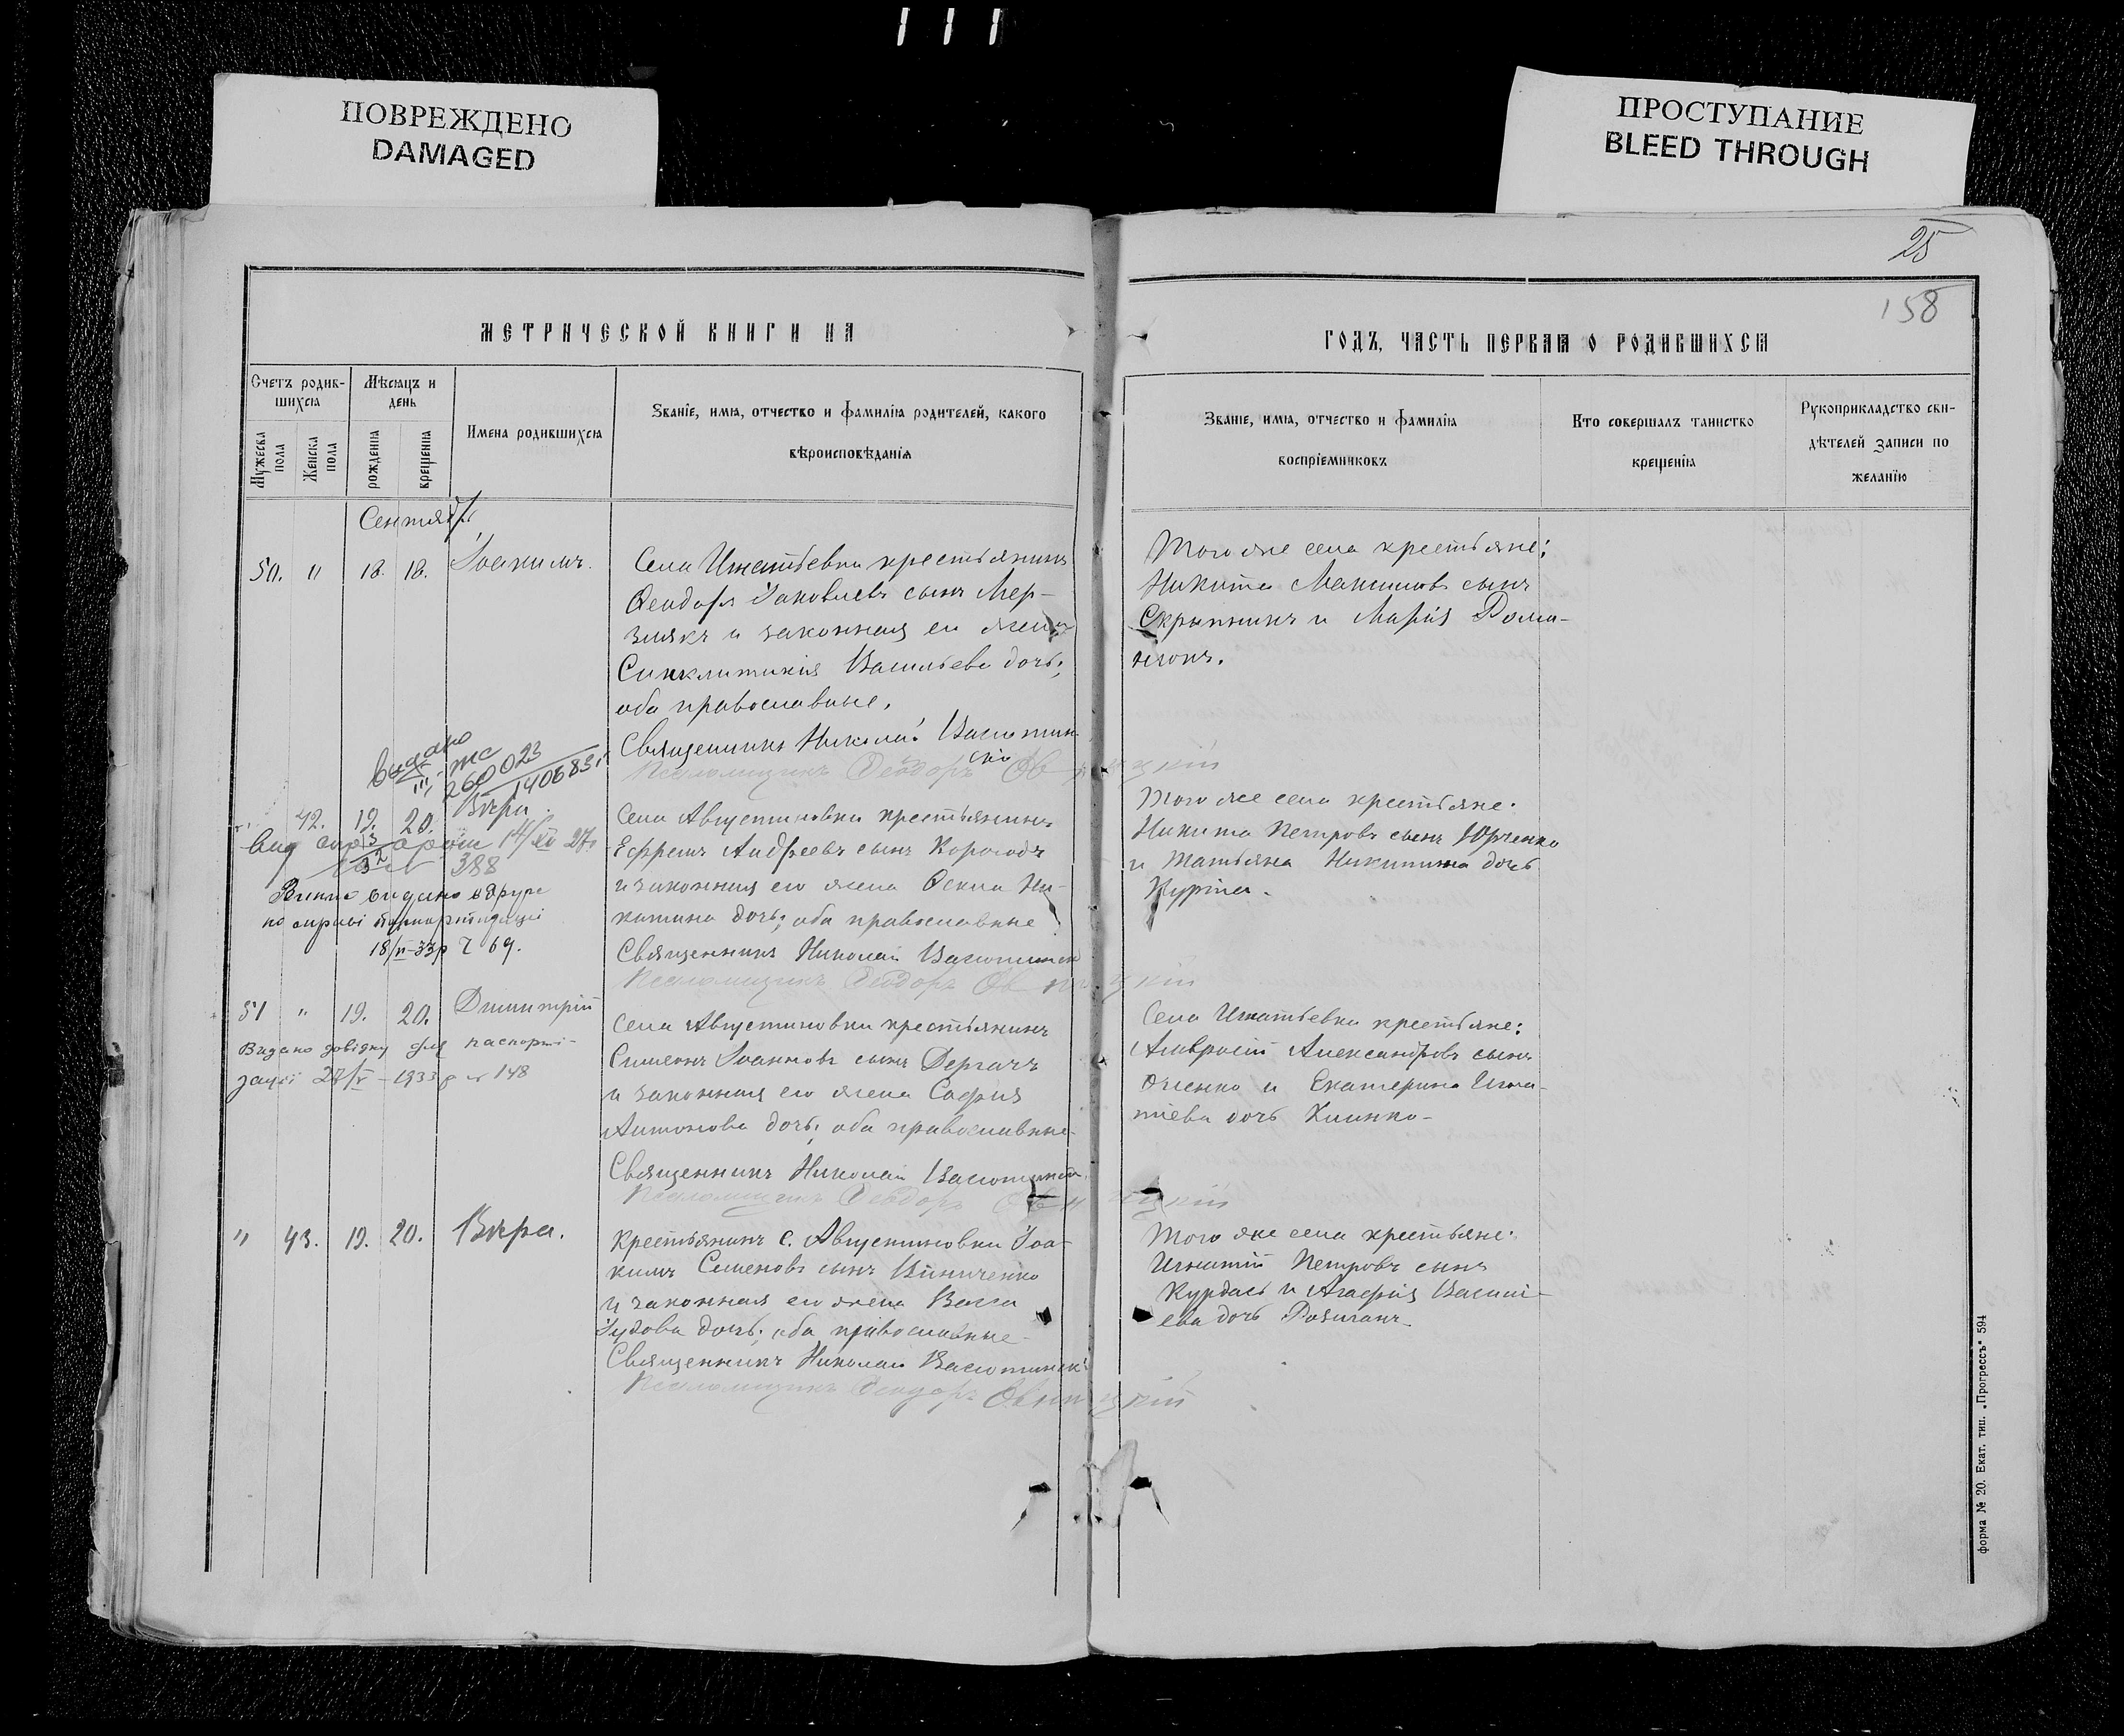 ПОВРЕЖДЕНО
DAMAGED
ПРОСТУПАНИЕ
BLEED THROUGH
25
158
МЕТРИЧЕСКОЙ КНИГИ НА
ГОДЪ, ЧАСТЬ ПЕРВАЯ О РОДИВШИХСЯ
Счетъ родив-
шихся
Мужеска
пола
Женска
пола
Мѣсяцъ и
день
рожденія
крещенія
Имена родившихся
Званіе, имя, отчество и фамилія родителей, какого
вѣроисповѣданія
Званіе, имя, отчество и фамилія
воспріемниковъ
Кто совершалъ таинство
крещенія
Рукоприкладство сви-
дѣтелей записи по
желанію
Сентябрь
50. " 18. 18. Іоакимъ.
Села Игнатьевки крестьянинъ
Феодоръ Іаковлевъ сынъ Мер-
злякъ и законная его жена
Синклитикія Васильева дочь;
оба православные.
Священникъ Николай Васютин-
скій
Псаломщикъ Феодоръ
Того же села крестьяне:
Никита Максимовъ сынъ
Скрыпникъ и Марія Рома-
нюкъ.
видано
260023
140683
42. 19. 20. Вѣра.
388
видано вдруге
18/VI-33р 69.
Села Августиновки крестьянинъ
Ефремъ Андреевъ сынъ Корогодъ
и законная его жена Фекла Ни-
китина дочь; оба православные
Священникъ Николай Васютинскій
Псаломщикъ Феодоръ
Того же села крестьяне:
Никита Петровъ сынъ Юрченко
и Татьяна Никитина дочь
Курпіна.
51 " 19. 20. Димитрій
Видано довідку для паспорті-
зації 27/V-1933 р № 148
Села Августиновки крестьянинъ
Симеонъ Іоанновъ сынъ Дергачъ
и законная его жена Софія
Антонова дочь; оба православные
Священникъ Николай Васютинскій
Псаломщикъ Феодоръ
Села Игнатьевки крестьяне:
Амвросій Александровъ сынъ
и Екатерина Игна-
тіева дочь Клинко
" 43. 19. 20. Вѣра.
Крестьянинъ с. Августиновки Іоа-
кимъ Семеновъ сынъ Винниченко
и законная его жена Васса
Іудова дочь; оба православные
Священникъ Николай Васютинскій
Псаломщикъ Феодоръ
Того же села крестьяне:
Игнатій Петровъ сынъ
Курдась и Агафія Василі-
ева дочь
форма № 20. Екат. тип. „Прогрессъ" 594